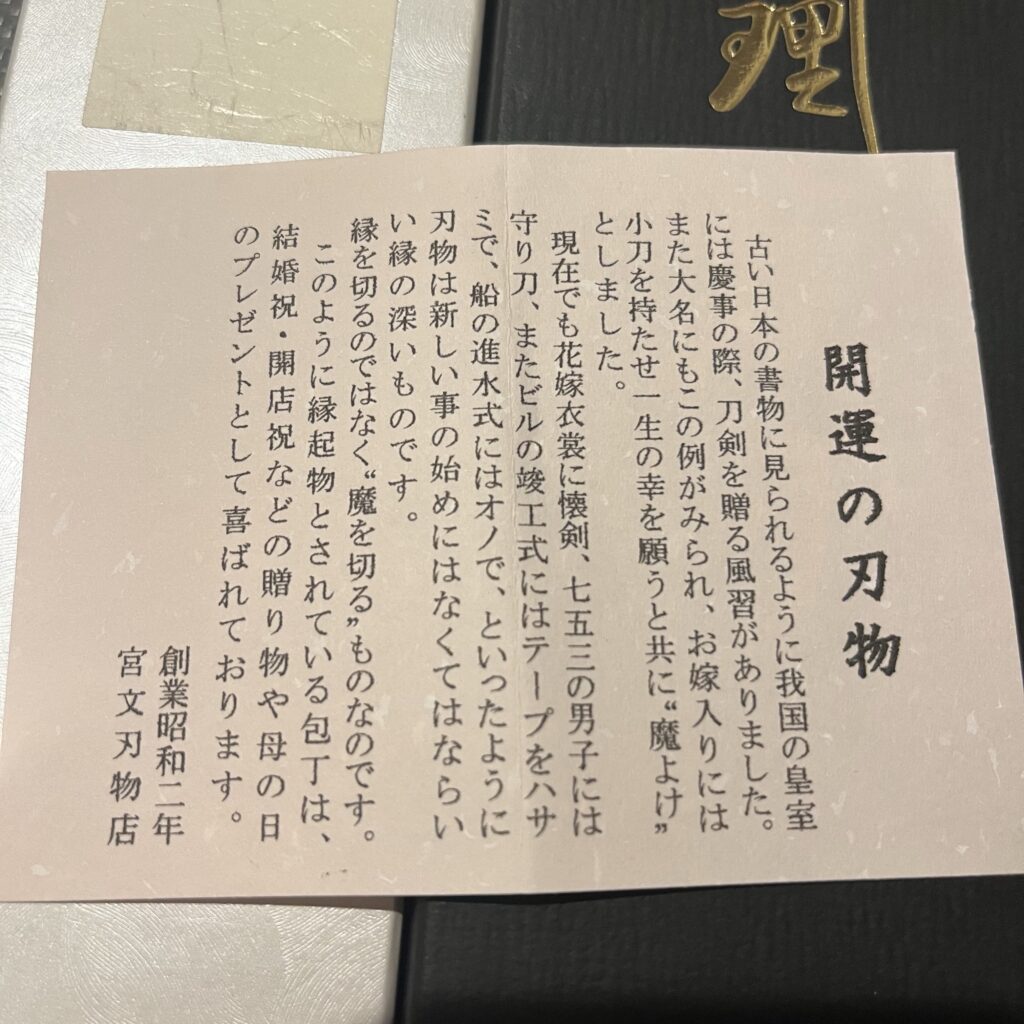 理
開運の刃物
古い日本の書物に見られるように我国の皇室
には慶事の際、刀剣を贈る風習がありました。
また大名にもこの例がみられ、お嫁入りには
小刀を持たせ一生の幸を願うと共に“魔よけ”
としました。
現在でも花嫁衣裳に懐剣、七五三の男子には
守り刀、またビルの竣工式にはテープをハサ
ミで、船の進水式にはオノで、といったように
刃物は新しい事の始めにはなくてはならい
い縁の深いものです。
縁を切るのではなく“魔を切る”ものなのです。
このように縁起物とされている包丁は、
結婚祝・開店祝などの贈り物や母の日
のプレゼントとして喜ばれております。
創業昭和二年
宮文刃物店